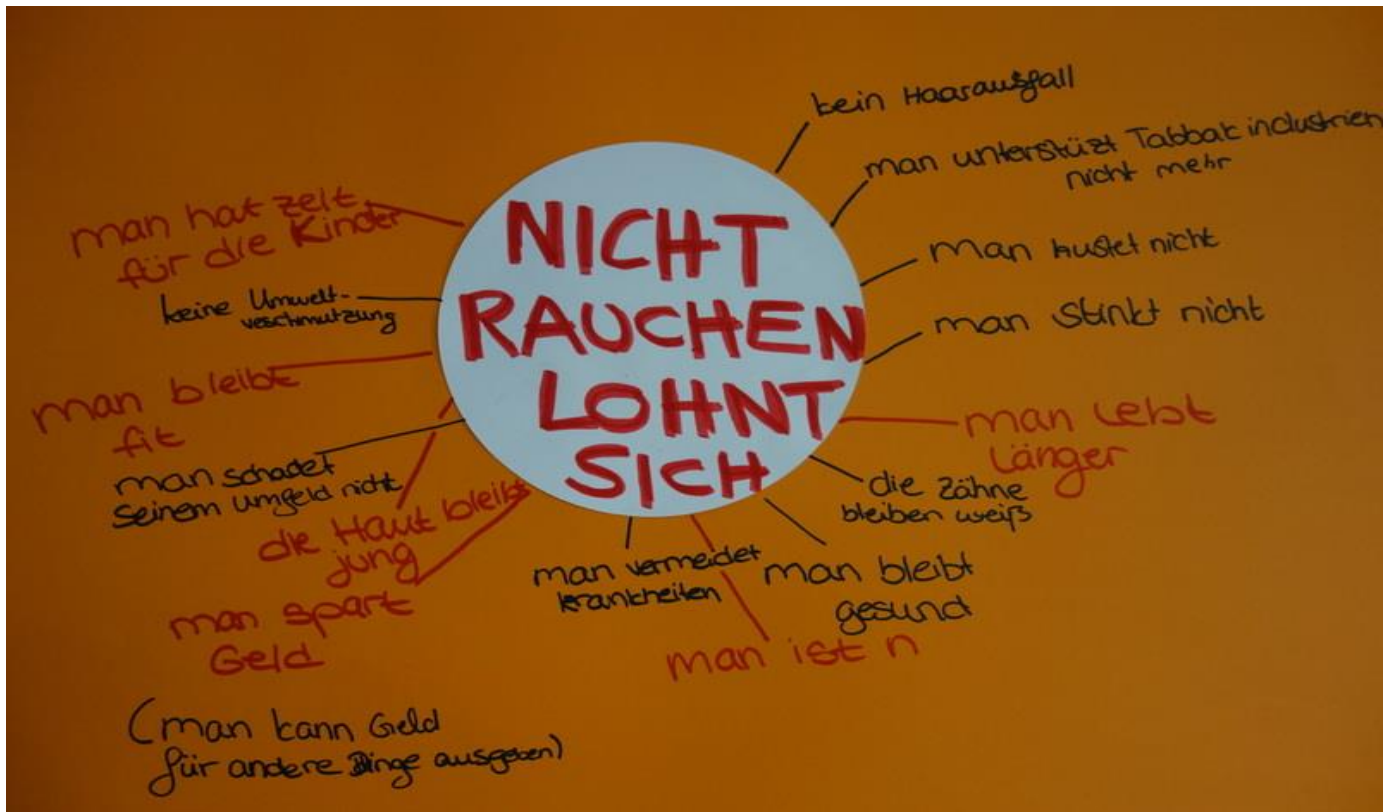 NICHT
RAUCHEN
LOHNT
SICH
kein Haarausfall
man unterstüzt Tabbak industrien
nicht mehr
man hustet nicht
man stinkt nicht
man lebt
Länger
die Zähne
bleiben weiß
man bleibt
gesund
man ist n
man vermeidet
krankheiten
man spart
Geld
(man kann Geld
für andere Dinge ausgeben)
die Haut bleibt
jung
man schadet
seinem umgeld nicht
man bleibt
fit
keine Umwelt-
veschmutzung
man hat zeit
für die Kinder